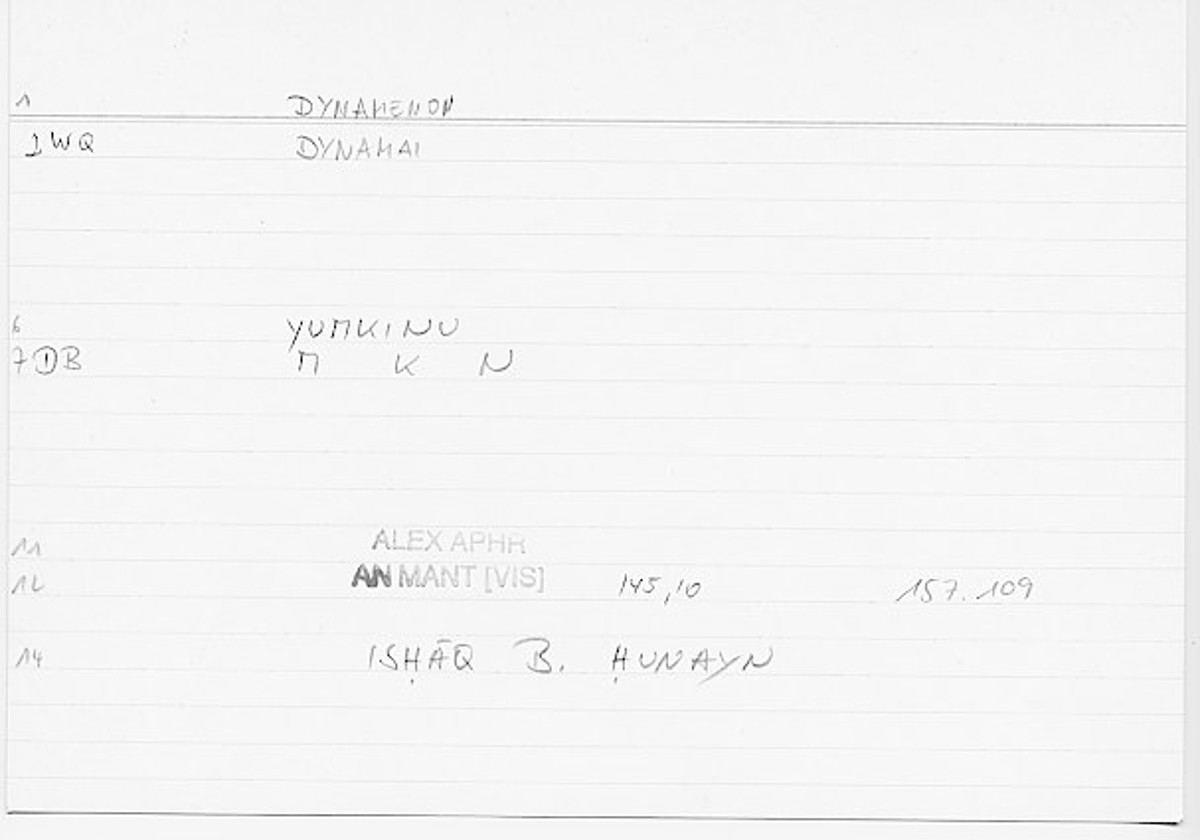 1 DYNAMENON
1WQ DYNAMAI
6 YUMKINU
7 ① B M K N
11 ALEX APHR
12 AN MANT [VIS] 145,10 157.109
14 ISḤĀQ B. ḤUNAYN